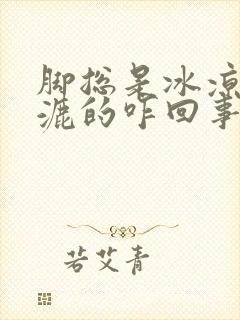 脚总是冰凉
漉的咋回事
若艾青